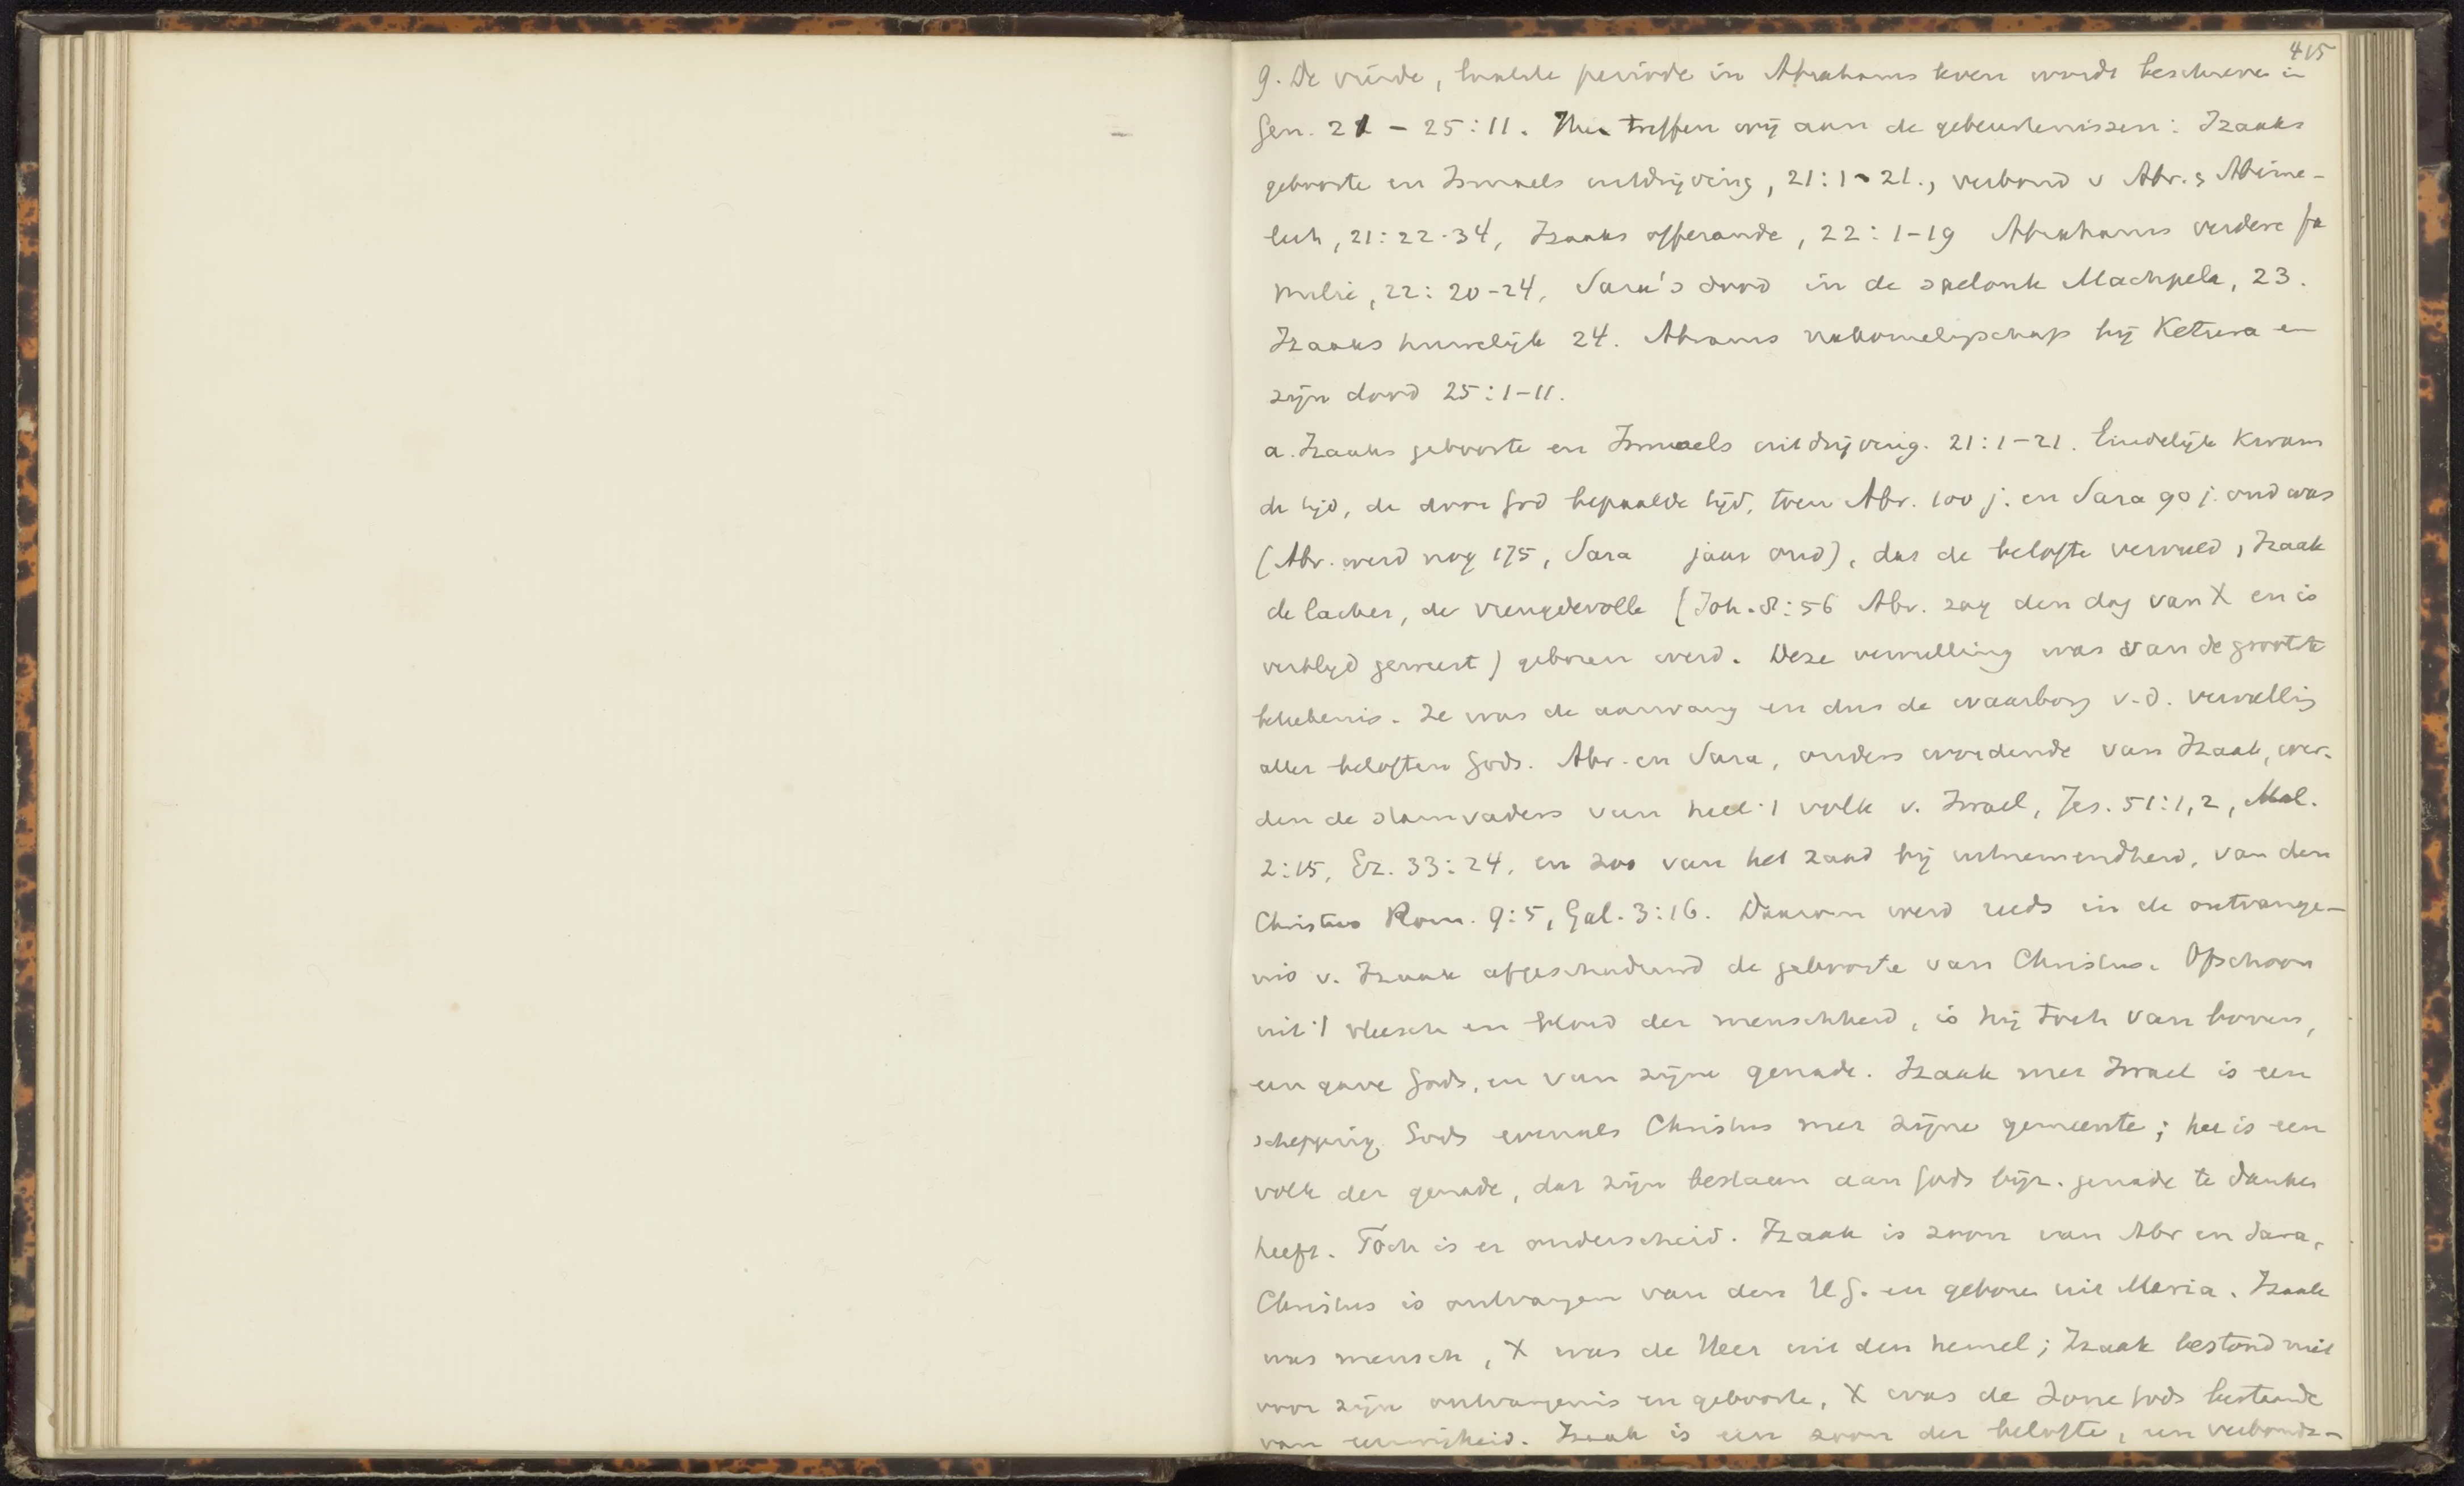 415
9. De vierde, laatste periode in Abrahams leven wordt beschreven in
Gen. 21 - 25:11. Hier treffen wij aan de gebeurtenissen: Izaaks
geboorte en Ismaels uitdrijving, 21:1-21., verbond v Abr. & Abime-
lech, 21:22-34, Izaaks offerande, 22:1-19 Abrahams verdere fa
milie, 22:20-24, Sara's dood in de spelonk Machpela, 23.
Izaaks huwelijk 24. Abrams nakomelingschap bij Ketura en
zijn dood 25:1-11.
a. Izaaks geboorte en Ismaels uitdrijving. 21:1-21. Eindelijk kwam
de tijd, de door God bepaalde tijd, toen Abr. 100 j. en Sara 90 j. oud was
(Abr. werd nog 175, Sara jaar oud), dat de belofte vervuld, Izaak
de lacher, de vreugdevolle (Joh. 8:56 Abr. zag den dag van X en is
verblijd geweest) geboren werd. Deze vervulling was van de grootste
beteekenis. Ze was de aanvang en dus de waarborg v.d. vervulling
aller beloften Gods. Abr. en Sara, ouders wordende van Izaak, wer-
den de stamvaders van heel 't volk v. Israel, Jes. 51:1,2, Mal.
2:15, Ez. 33:24, en zoo van het zaad bij uitnemendheid, van den
Christus Rom. 9:5, Gal. 3:16. Daarom werd reeds in de ontvange-
nis v. Izaak afgeschaduwd de geboorte van Christus. Ofschoon
uit 't vleesch en bloed der menschheid, is hij toch van boven,
een gave Gods, en van zijne genade. Izaak met Israel is een
schepping Gods evenals Christus met zijne gemeente; het is een
volk der genade, dat zijn bestaan aan Gods bijz. genade te danken
heeft. Toch is er onderscheid. Izaak is zoon van Abr en Sara,
Christus is ontvangen van den H.G. en geboren uit Maria. Izaak
was mensch, X was de Heer uit den hemel; Izaak bestond niet
voor zijn ontvangenis en geboorte, X was de Zone Gods bestaande
van eeuwigheid. Izaak is een zoon der belofte, een verbonds-